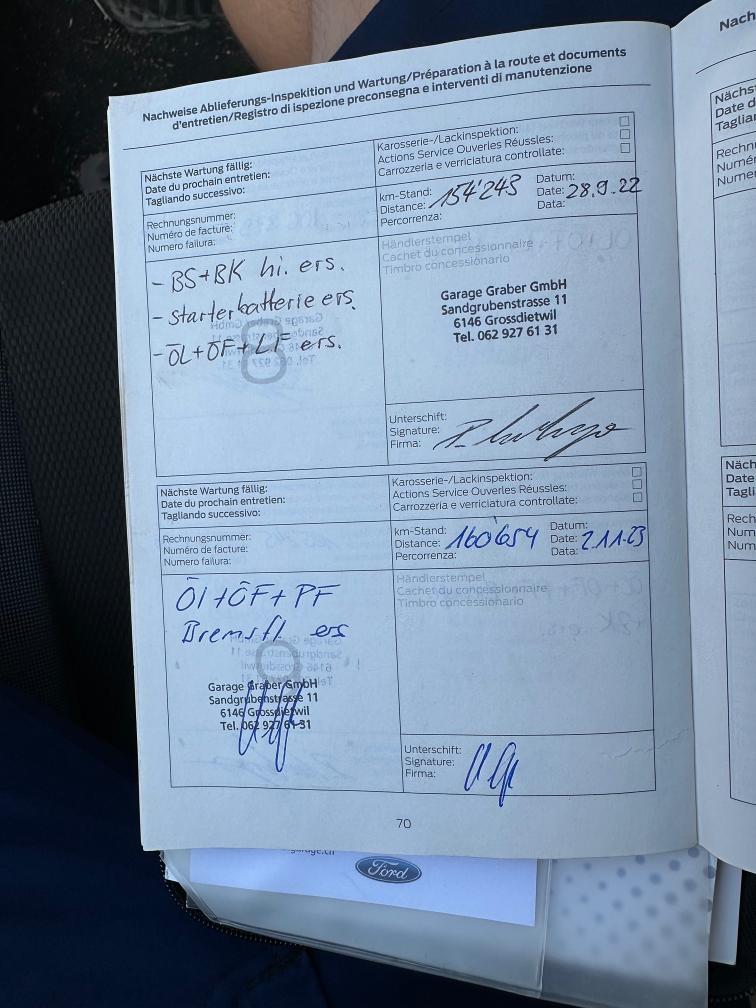 Nachweise Ablieferungs-Inspekition und Wartung/Préparation à la route et documents
d'entretien/Registro di ispezione preconsegna e interventi di manutenzione
Nächste Wartung fällig:
Date du prochain entretien:
Tagliando successivo:
Karosserie-/Lackinspektion:
Actions Service Ouverles Réussles:
Carrozzeria e verriciatura controllate:
Rechnungsnummer:
Numéro de facture:
Numero failura:
km-Stand:
Distance: 154'243
Percorrenza:
Datum:
Date: 28.9.22
Data:
- BS+BK hi. ers.
- Starterbatterie ers.
- ÖL+ÖF+LF ers.
Händlerstempel
Cachet du concessionnaire
Timbro concessionario
Garage Graber GmbH
Sandgrubenstrasse 11
6146 Grossdietwil
Tel. 062 927 61 31
Unterschift:
Signature:
Firma:
Nächste Wartung fällig:
Date du prochain entretien:
Tagliando successivo:
Karosserie-/Lackinspektion:
Actions Service Ouverles Réussles:
Carrozzeria e verriciatura controllate:
Rechnungsnummer:
Numéro de facture:
Numero failura:
km-Stand:
Distance: 160'654
Percorrenza:
Datum:
Date: 2.11.23
Data:
Öl+ÖF+PF
Bremsfl. ers
Garage Graber GmbH
Sandgrubenstrasse 11
6146 Grossdietwil
Tel. 062 927 61 31
Händlerstempel
Cachet du concessionnaire
Timbro concessionario
Unterschift:
Signature:
Firma:
70
Ford